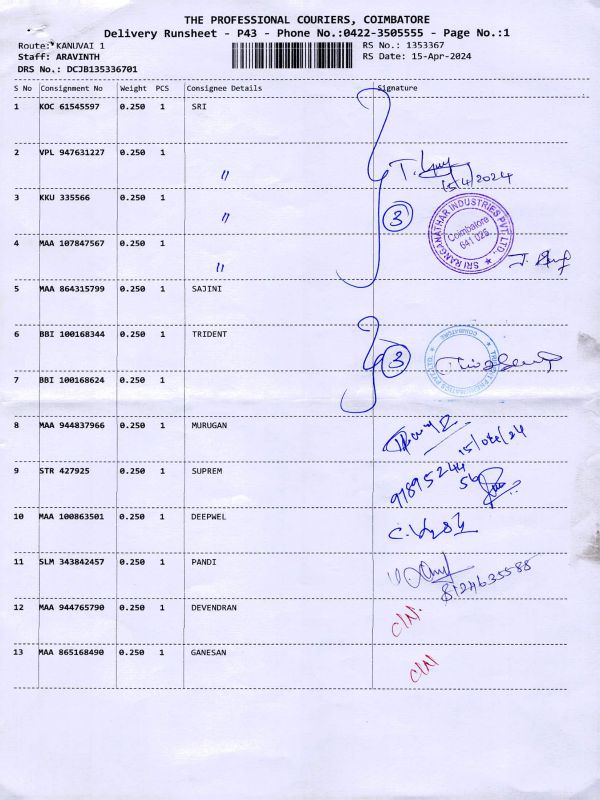 THE PROFESSIONAL COURIERS, COIMBATORE
Delivery Runsheet - P43 - Phone No.:0422-3505555 - Page No.:1
Route: KANUVAI 1 RS No.: 1353367
Staff: ARAVINTH RS Date: 15-Apr-2024
DRS No.: DCJB135336701
S No Consignment No Weight PCS Consignee Details Signature
1 KOC 61545597 0.250 1 SRI
2 VPL 947631227 0.250 1
〃
15/4/2024
3 KKU 335566 0.250 1
〃 3
SRI RANGANATHAR INDUSTRIES PVT LTD.
Coimbatore
641 025
4 MAA 107847567 0.250 1
〃
5 MAA 864315799 0.250 1 SAJINI
6 BBI 100168344 0.250 1 TRIDENT
3
COIMBATORE
TRIDENT PNEUMATICS PVT LTD
7 BBI 100168624 0.250 1
8 MAA 944837966 0.250 1 MURUGAN
15/04/24
9 STR 427925 0.250 1 SUPREM
9789524456
10 MAA 100863501 0.250 1 DEEPWEL
11 SLM 343842457 0.250 1 PANDI
8124635588
12 MAA 944765790 0.250 1 DEVENDRAN
C/N.
13 MAA 865168490 0.250 1 GANESAN
C/N